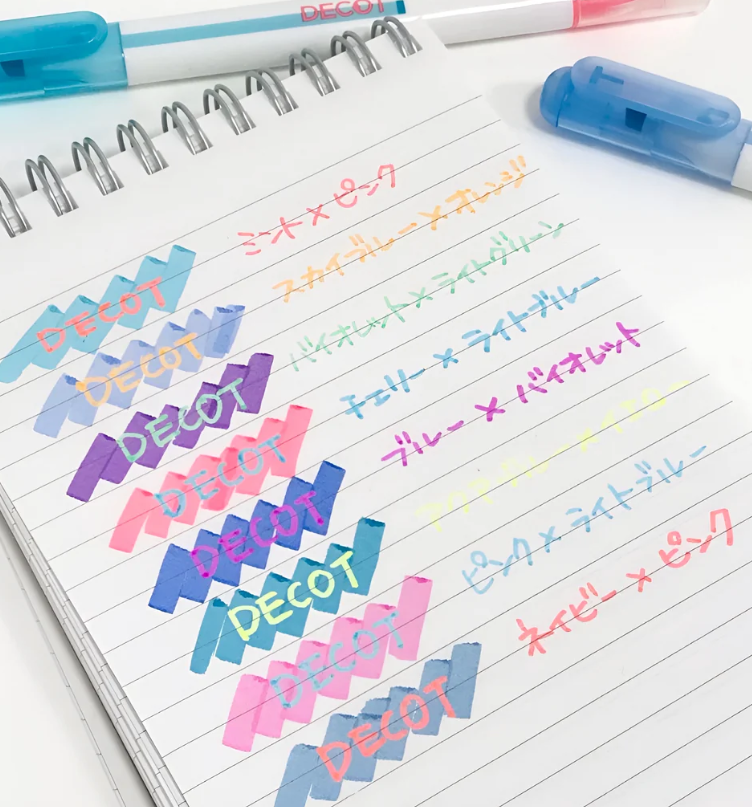 DECOT
T
ミント×ピンク
DECOT
スカイブルー×オレンジ
DECOT
バイオレット×ライトグリーン
DECOT
チェリー×ライトブルー
DECOT
ブルー×バイオレット
DECOT
アクアブルー×イエロー
DECOT
ピンク×ライトブルー
DECOT
ネイビー×ピンク
DECOT